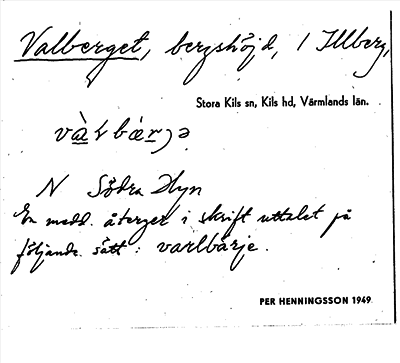 Valberget, bergshöjd, i Illberg,
Stora Kils sn, Kils hd, Värmlands län.
N Södra Hyn
En medd. återger i skrift uttalet på
följande sätt: varlbärje.
PER HENNINGSSON 1949